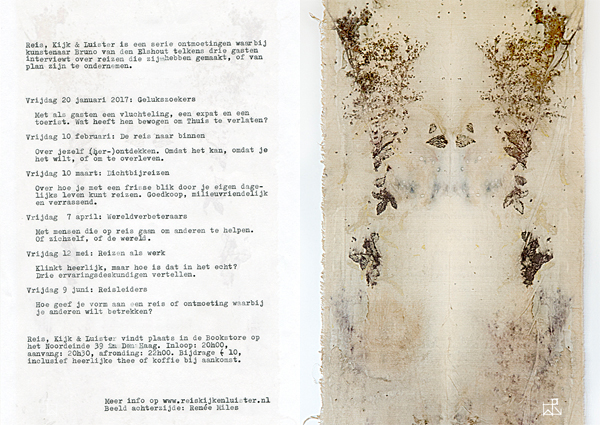 Reis, Kijk & Luister is een serie ontmoetingen waarbij
kunstenaar Bruno van den Elshout telkens drie gasten
interviewt over reizen die zij hebben gemaakt, of van
plan zijn te ondernemen.
Vrijdag 20 januari 2017: Gelukszoekers
Met als gasten een vluchteling, een expat en een
toerist. Wat heeft hen bewogen om Thuis te verlaten?
Vrijdag 10 februari: De reis naar binnen
Over jezelf (her-)ontdekken. Omdat het kan, omdat je
het wilt, of om te overleven.
Vrijdag 10 maart: Dichtbijreizen
Over hoe je met een frisse blik door je eigen dage-
lijks leven kunt reizen. Goedkoop, milieuvriendelijk
en verrassend.
Vrijdag 7 april: Wereldverbeteraars
Met mensen die op reis gaan om anderen te helpen.
Of zichzelf, of de wereld.
Vrijdag 12 mei: Reizen als werk
Klinkt heerlijk, maar hoe is dat in het echt?
Drie ervaringsdeskundigen vertellen.
Vrijdag 9 juni: Reisleiders
Hoe geef je vorm aan een reis of ontmoeting waarbij
je anderen wilt betrekken?
Reis, Kijk & Luister vindt plaats in de Bookstore op
het Noordeinde 39 in Den Haag. Inloop: 20h00,
aanvang: 20h30, afronding: 22h00. Bijdrage € 10,
inclusief heerlijke thee of koffie bij aankomst.
Meer info op www.reiskijkenluister.nl
Beeld achterzijde: Renée Miles